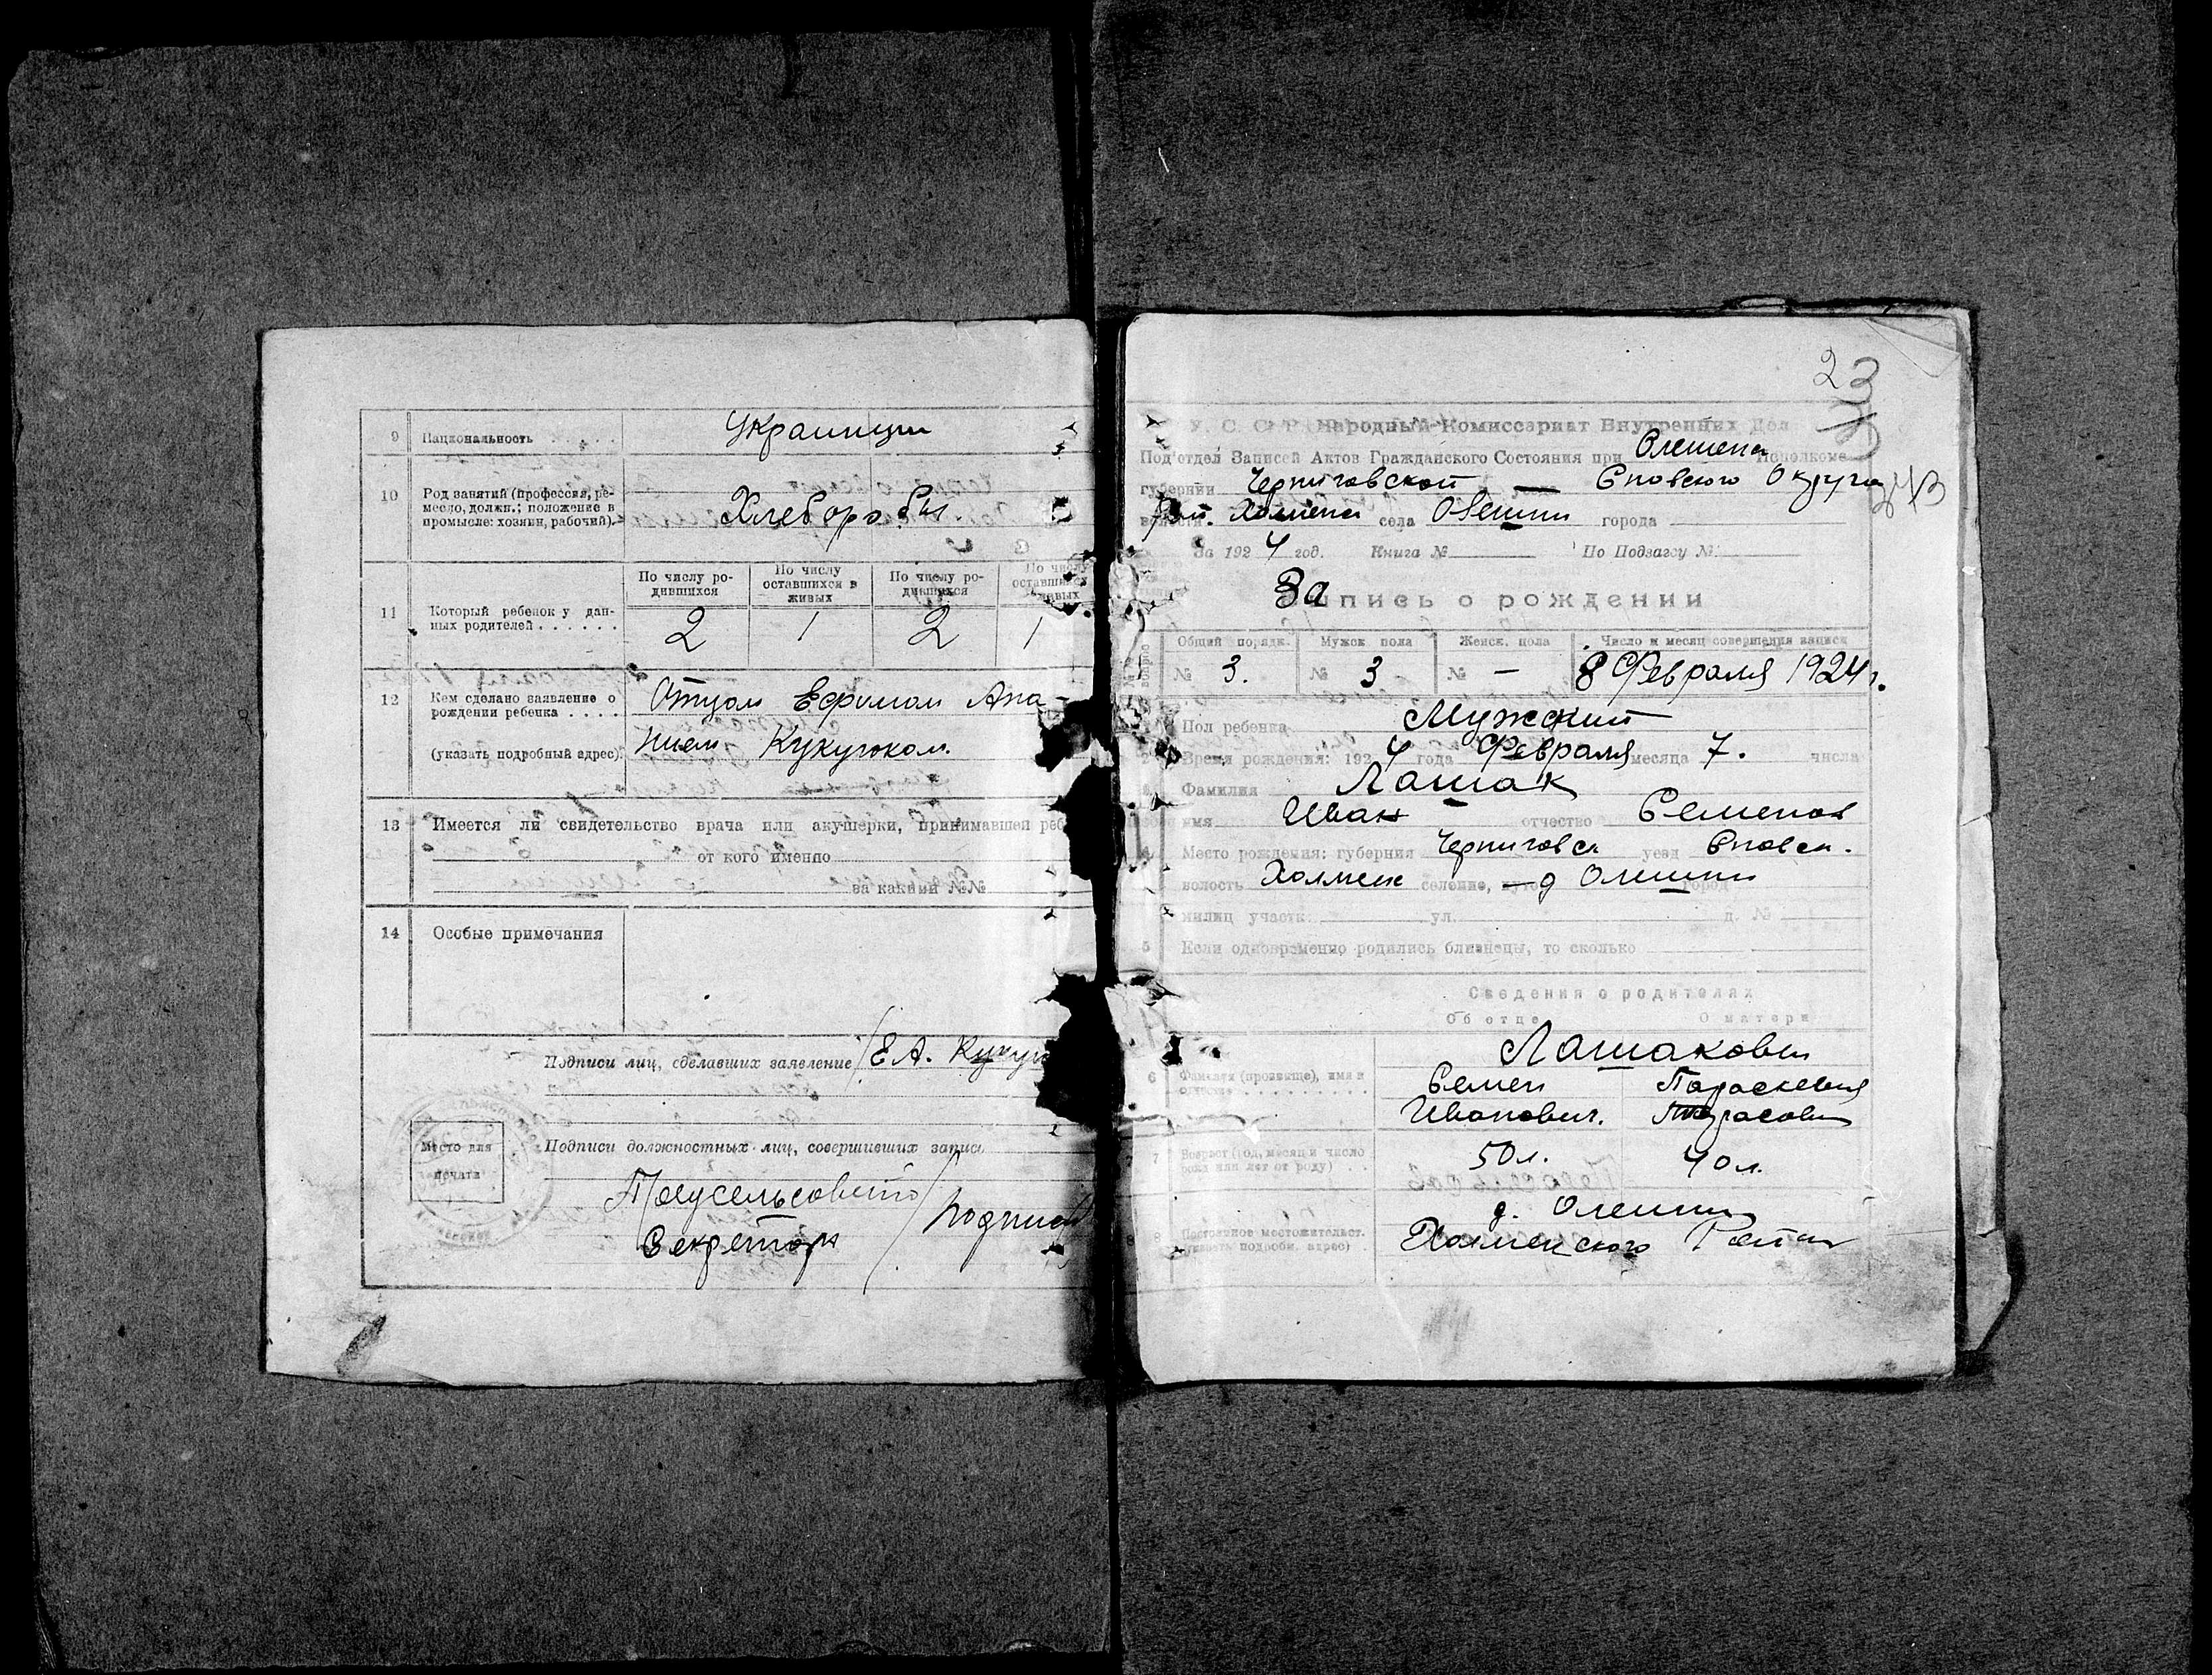 9 Национальность Украинцы
10 Род занятий (профессия, ре-
месло, должн.; положение в
промысле: хозяин, рабочий). Хлеборобы.
11 Который ребенок у дан-
ных родителей
По числу ро-
дившихся
По числу
оставшихся в
живых
По числу ро-
дившихся
По числу
оставшихся
живых
2 1 2 1
12 Кем сделано заявление о
рождении ребенка
Отцом Ефимом Ана-
(указать подробный адрес). нием Кукуюком.
13 Имеется ли свидетельство врача или акушерки, принимавшей реб
от кого именно
за каким №№
14 Особые примечания
Подписи лиц, сделавших заявление / Е А. Кукую
Место для
печати
Подписи должностных лиц, совершивших запись
Секретарь
23
У. С. С. Р. Народный Комиссариат Внутренних Дел
Подотдел Записей Актов Гражданского Состояния при Олешен Исполкоме
губернии Черниговской — Сновского Округа
Холмен села города
За 1924 год. Книга № По Подзагсу №
Запись о рождении
Общий порядк. Мужск пола Женск. пола Число и месяц совершения записи
№ 3. № 3 № — 8 Февраля 1924 г.
Пол ребенка Мужский
2 Время рождения: 1924 года Февраля месяца 7. числа
3 Фамилия Лашак
имя Иван отчество Семенов
4 Место рождения: губерния Черниговск уезд Сновск.
волость Холменск селение, д Олешни город
милиц участк. ул. д. №
5 Если одновременно родились близнецы, то сколько
Сведения о родителях
Об отце О матери
Лашаковы
6 Фамилия (прозвище), имя и
отчество
Семен Параскевия
Иванович. Тарасовн
7 Возраст (год, месяц и число
рожд или лет от роду) 50 л. 40 л.
8 Постоянное местожительст.
(указать подробн. адрес)
д. Олешни
Холменского